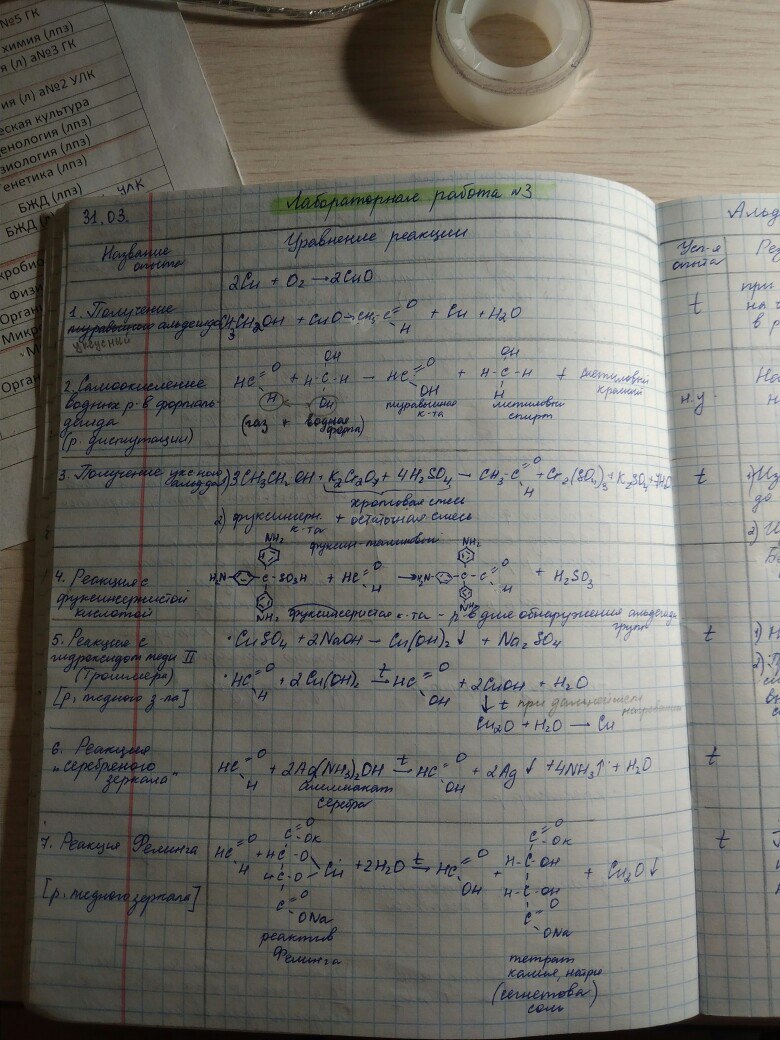 №5 ГК
химия (лпз)
я (л) а№3 ГК
ия (л) а№2 УЛК
еская культура
енология (лпз)
зиология (лпз)
енетика (лпз)
БЖД (лпз) УЛК
БЖД
кробио
Физи
Органи
Микро
Орган
31.03.
Лабораторная работа №3
Название опыта
Уравнение реакции
2Cu + O₂ → 2CuO
1. Получение
муравьиного альдегида
уксусный
CH₃CH₂OH + CuO → CH₃-C O H + Cu + H₂O
2. Самоокисление
водных р-в формаль-
дегида
(р. диспутации)
HC O H + H-C-H OH OH → HC O OH + H-C-H OH H + метиловый красный
(газ + водная
муравьиная к-та
метиловый спирт
3. Получение уксусного альдегида
1) 3CH₃CH₂OH + K₂Cr₂O₇ + 4H₂SO₄ → CH₃-C O H + Cr₂(SO₄)₃ + K₂SO₄ + 7H₂O
хромовая смесь
2) фуксинсерн. к-та + остаточная смесь
4. Реакция с
фуксинсернистой
кислотой
H₂N C SO₃H NH₂ NH₂ + HC O H → H₂N C C O H NH₂ NH₂ + H₂SO₃
фуксинсернистая к-та - р-в для обнаружения альдегидн. групп
5. Реакция с
гидроксидом меди II
(Троммера)
[р. медного з-ла]
• CuSO₄ + 2NaOH → Cu(OH)₂↓ + Na₂SO₄
• HC O H + 2Cu(OH)₂ t→ HC O OH + 2CuOH + H₂O
↓ t при дальнейшем нагревании
Cu₂O + H₂O → Cu
6. Реакция
"серебреного
зеркала"
HC O H + 2Ag(NH₃)₂OH t→ HC O OH + 2Ag↓ + 4NH₃↑ + H₂O
аммиакат
серебра
7. Реакция Фелинга
[р. медного зеркала]
HC O H + C O OK HC-O HC-O Cu C O ONa + 2H₂O t→ HC O OH + C O OK H-C-OH H-C-OH C O ONa + Cu₂O↓
реактив
Фелинга
тетрат
калия, натрия
(сегнетова)
соль
Альд
Усл-я
опыта
Рез
t
при
на
в р
н.у.
На
н
t
1) Из
до
2)
t
1) Н
2) П
t
t